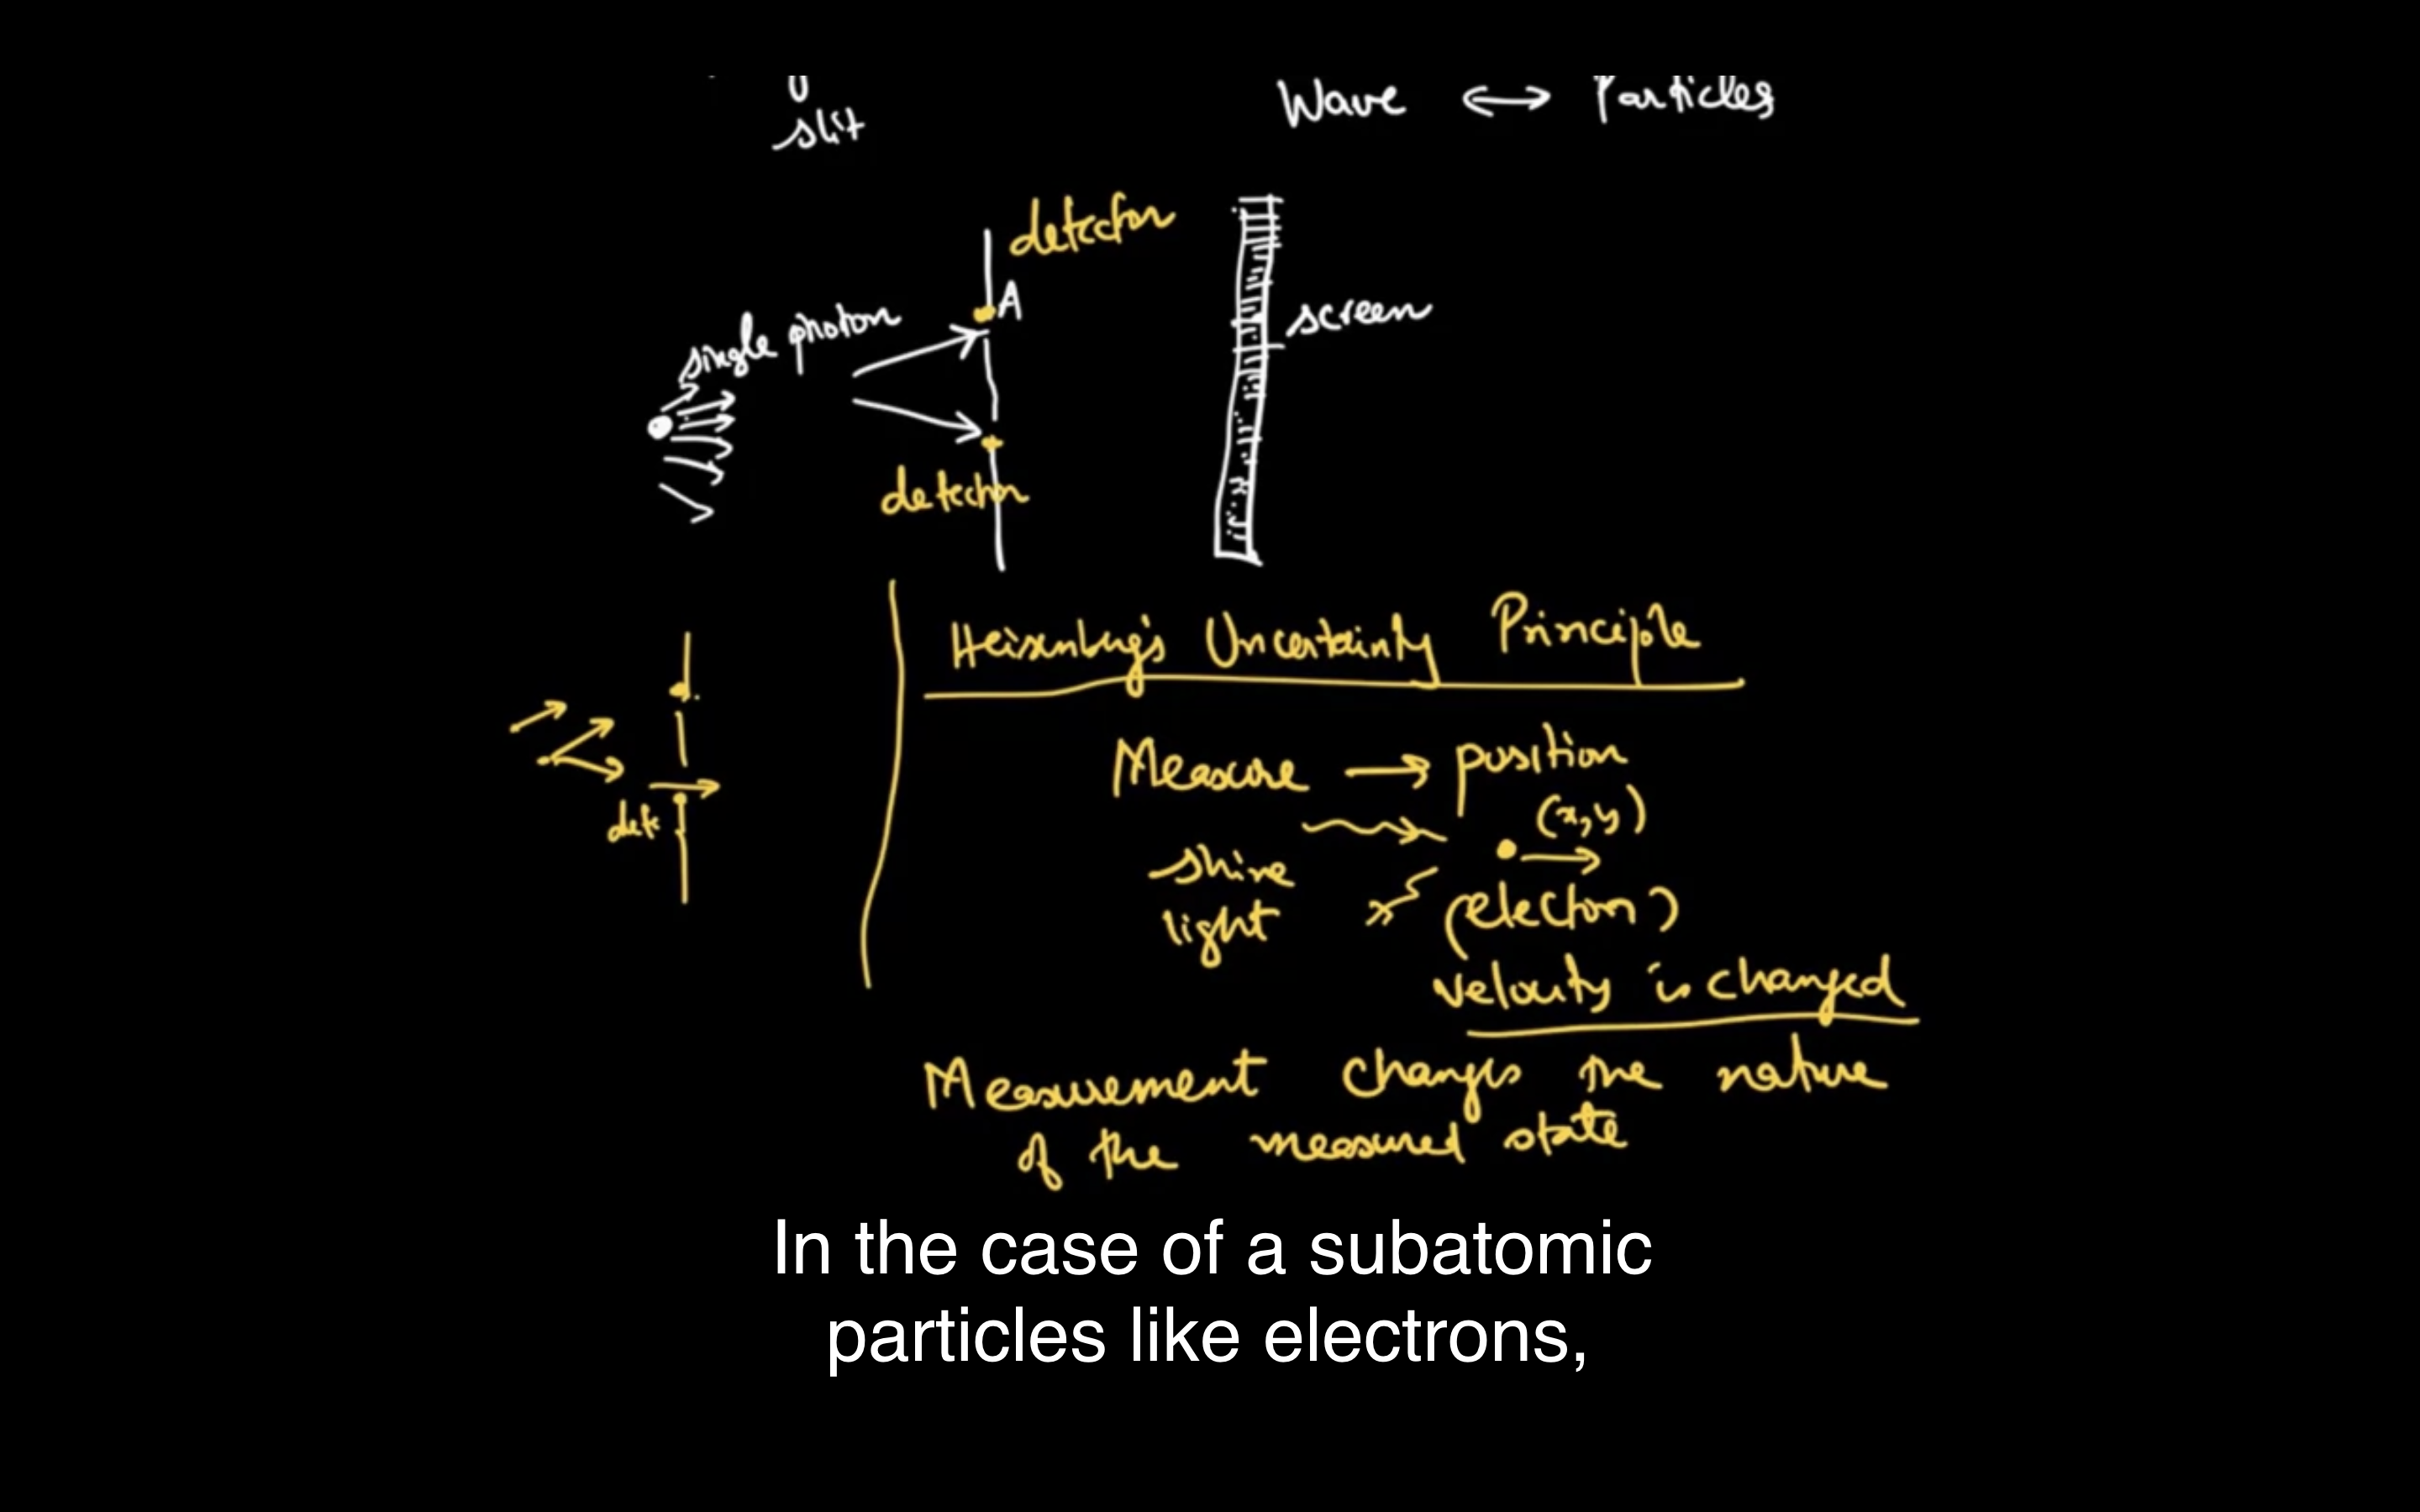 slit
Wave ↔ Particles
detector
A
single photon
screen
detector
Heisenberg's Uncertainty Principle
Measure → position
(x,y)
shine
light
(electron)
velocity is changed
dete
Measurement changes the nature
of the measured state
In the case of a subatomic
particles like electrons,